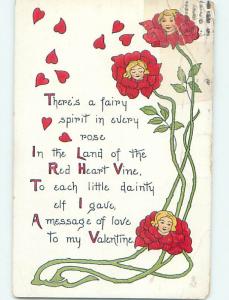 There's a fairy
spirit in every
rose
In the Land of the
Red Heart Vine,
To each little dainty
elf I gave,
A message of love
to my Valentine.